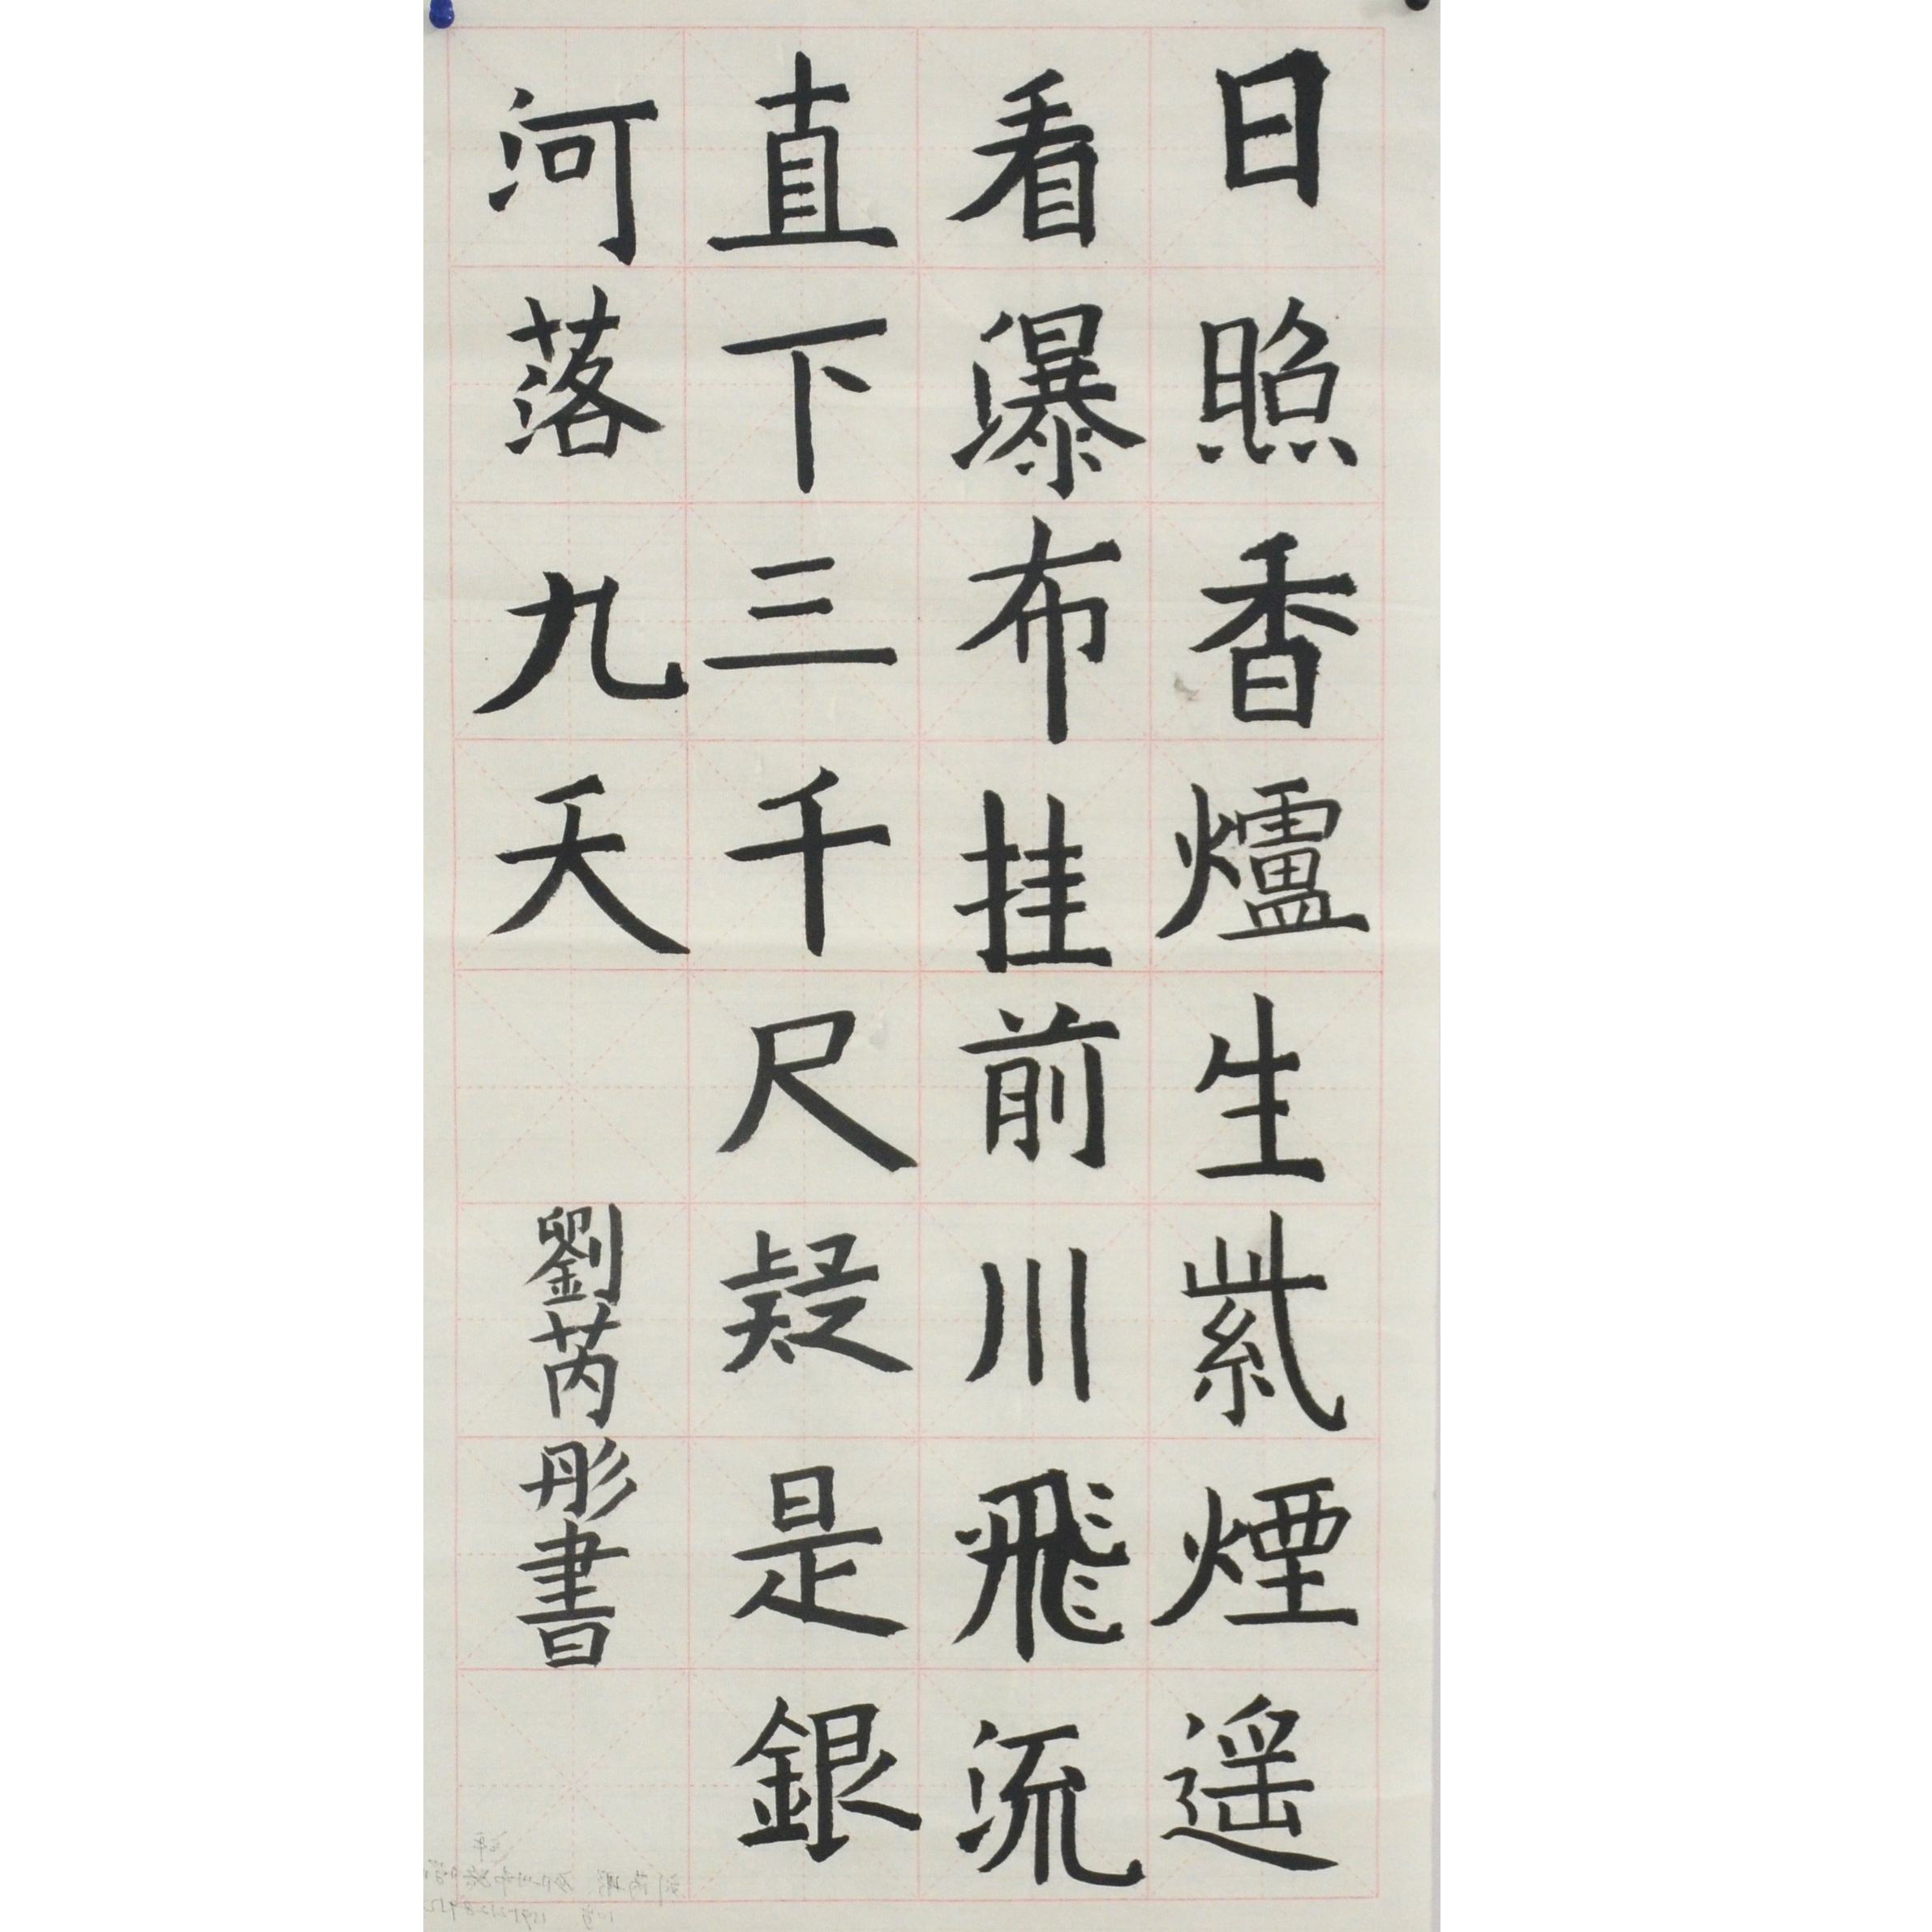 日照香爐生紫煙遥
看瀑布挂前川飛流
直下三千尺疑是銀
河落九天
劉芮彤書